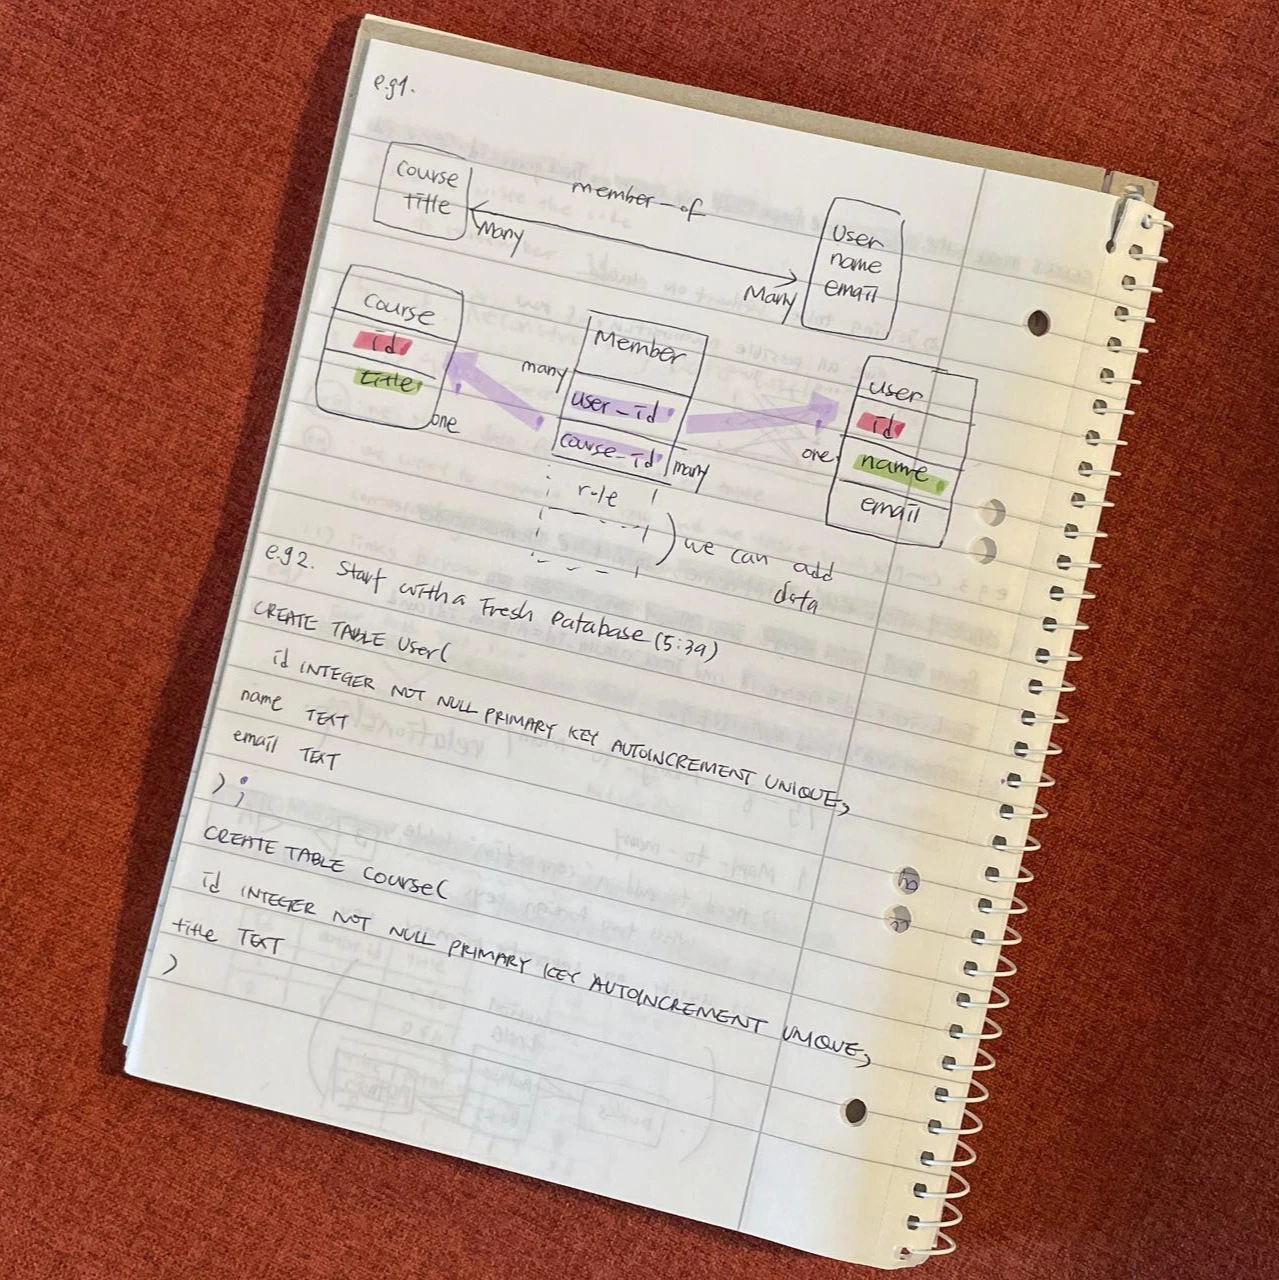 e.g1.
course
title
member-of
Many
Many
User
name
email
course
id
title
one
many
Member
user_id
course_id
many
role
one
user
id
name
email
we can add
data
e.g2. Start with a Fresh Database (5:39)
CREATE TABLE User(
id INTEGER NOT NULL PRIMARY KEY AUTOINCREMENT UNIQUE,
name TEXT
email TEXT
);
CREATE TABLE Course(
id INTEGER NOT NULL PRIMARY KEY AUTOINCREMENT UNIQUE,
title TEXT
)